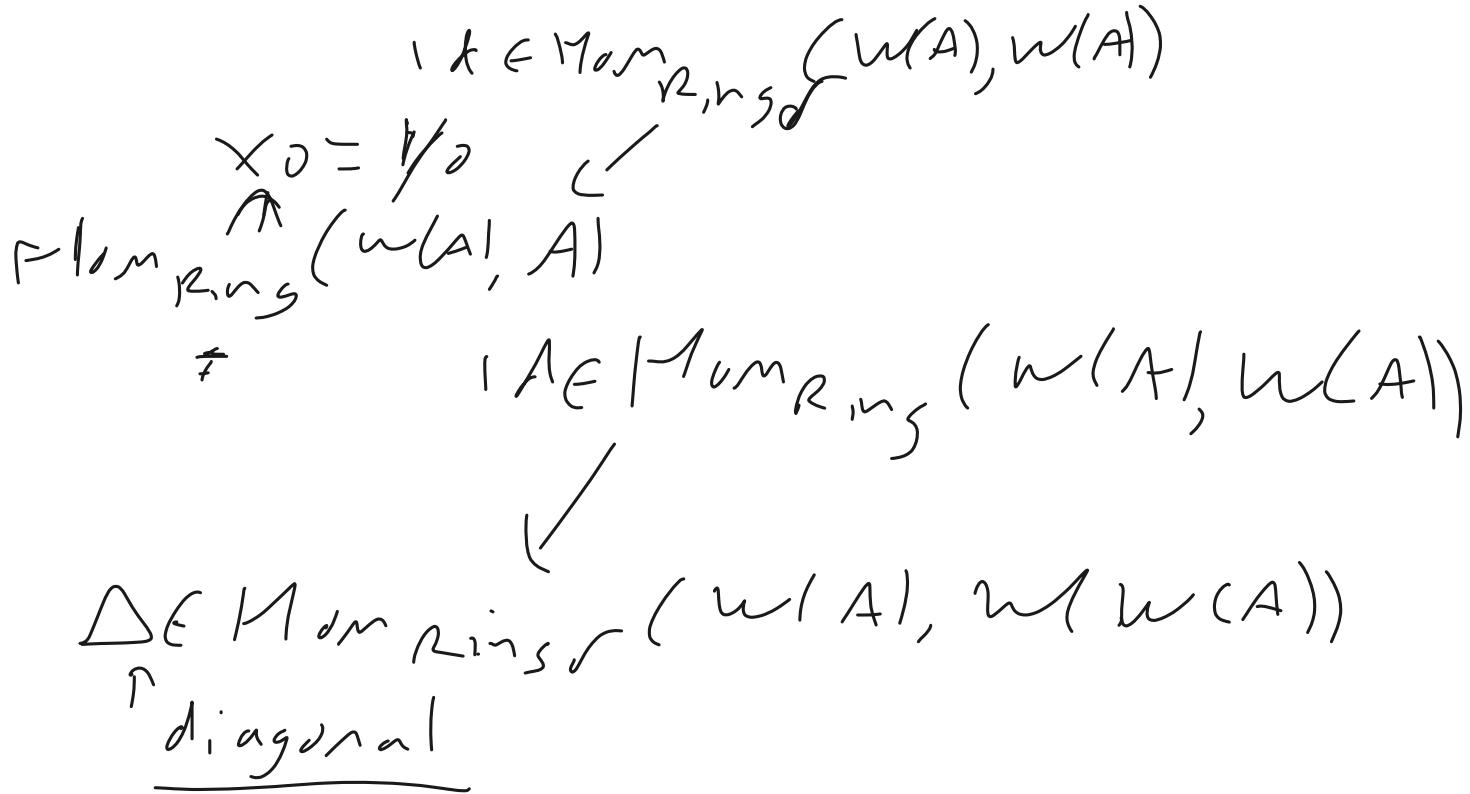 id ∈ Hom_{Rings_δ}(W(A), W(A))
x_0 = w_0
Hom_{Rings}(W(A), A)
id ∈ Hom_{Rings}(W(A), W(A))
Δ ∈ Hom_{Rings_δ}(W(A), W(W(A)))
diagonal